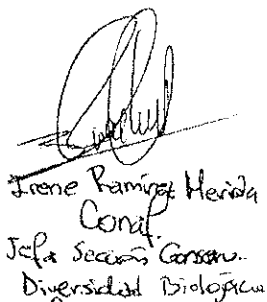 Irene Ramírez Merida
Conaf.
Jefa Sección Conserv..
Diversidad Biológica